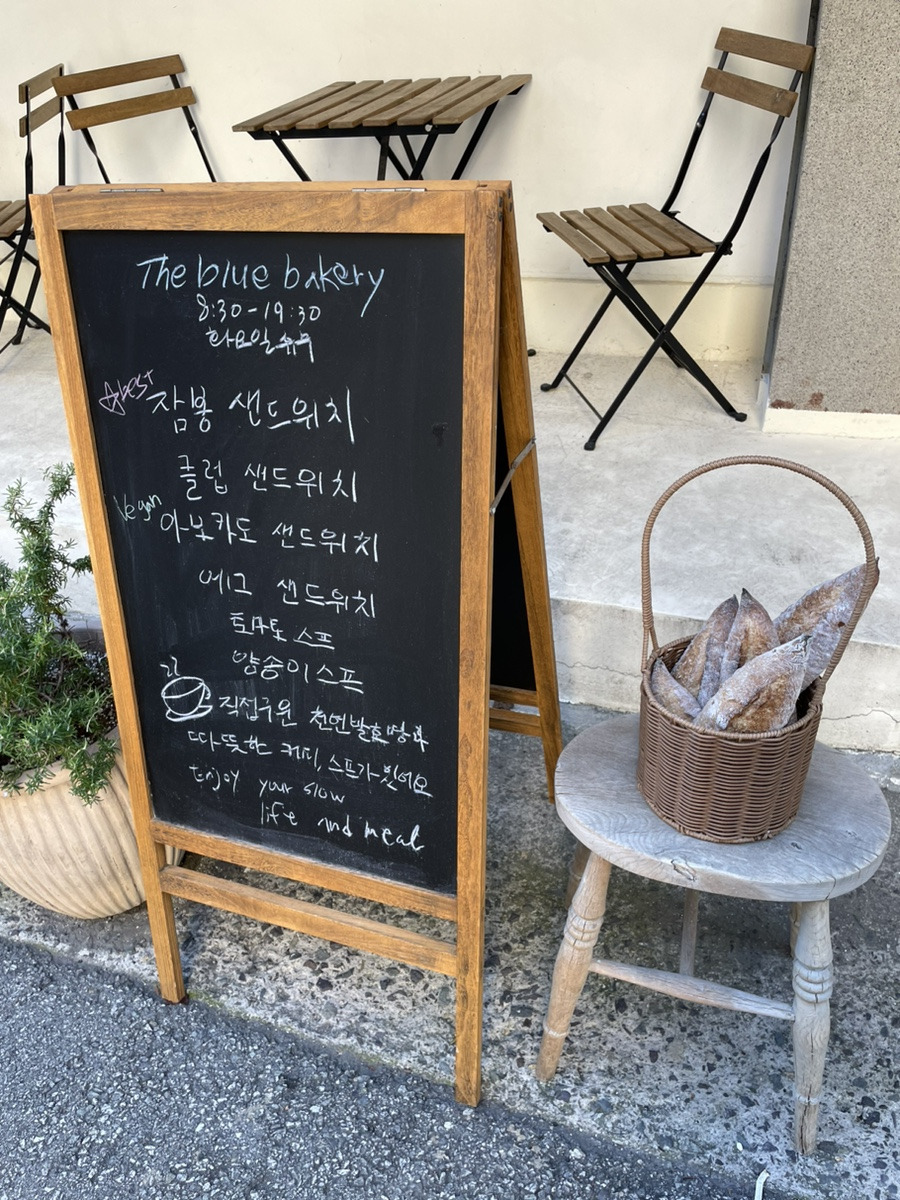 The blue bakery
8:30-19:30
화요일 휴무
☆best 잠봉 샌드위치
클럽 샌드위치
Vegan 아보카도 샌드위치
에그 샌드위치
토마토 스프
양송이 스프
직접구운 천연발효빵과
따뜻한 커피, 스프가 있어요
Enjoy your slow
life and meal